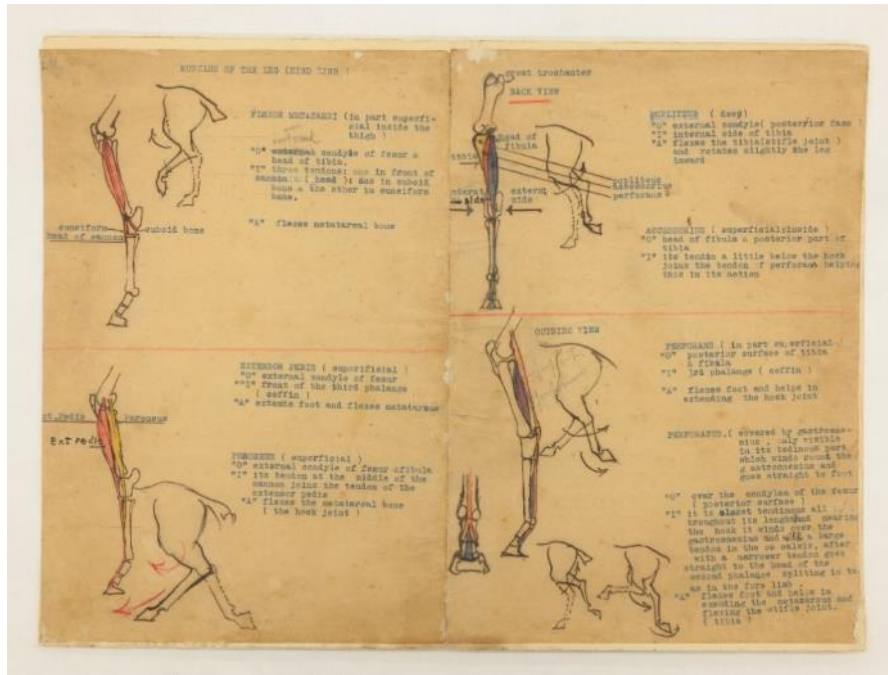 MUSCLES OF THE LEG (HIND LIMB )
FLEXOR METATARSI (in part superfi-
cial inside the
thigh )
"O" external condyle of femur &
head of tibia.
"I" three tendons: one in front of
cannon ( head ); one in cuboid
bone & the other in cuneiform
bone.
"A" flexes metatarsal bone
cuneiform
cuboid bone
head of cannon
EXTENSOR PEDIS ( superificial )
"O" external condyle of femur
"I" front of the third phalange
( coffin )
"A" extends foot and flexes metatarsus
Ext.Pedis
Peroneus
Ext Pedis
PERONEUS ( superficial )
"O" external condyle of femur &fibula
"I" its tendon at the middle of the
cannon joins the tendon of the
extensor pedis
"A" flexes the metatarsal bone
( the hock joint )
great trochanter
BACK VIEW
head of
fibula
externl
side
side
popliteus
accessorius
perforans
POPLITEUS ( deep)
"O" external condyle( posterrior face )
"I" internal side of tibia
"A" flexes the tibia(stifle joint )
and rotates slightly the leg
inward
ACCESSORIUS ( superficial:inside )
"O" head of fibula & posterior part of
tibia
"I" its tendin a little below the hock
joins the tendon of perforans helping
this in its action
OUTSIDE VIEW
PERFORANS ( in part superficial )
"O" posterior surface of tibia
& fibula
"I" 3rd phalange ( coffin )
"A" flexes foot and helps in
extending the hock joint
PERFORATUS.( covered by gastrocne-
mius , only visible
in its tedinous part
which winds round the
g astrocnemius and
goes straight to foot
"O" over the condyles of the femur
( posterior surface )
"I" it is almost tendinous all
troughout its lenght and nearing
the hock it winds over the
gastrocnemius and a large
tendon in the os calcis, after
with a narrower tendon goes
straight to the head of the
second phalange splitting in two
as in the fore limb .
"A" flexes foot and helps in
exending the metatarsus and
flexing the stifle joint.
( tibia )